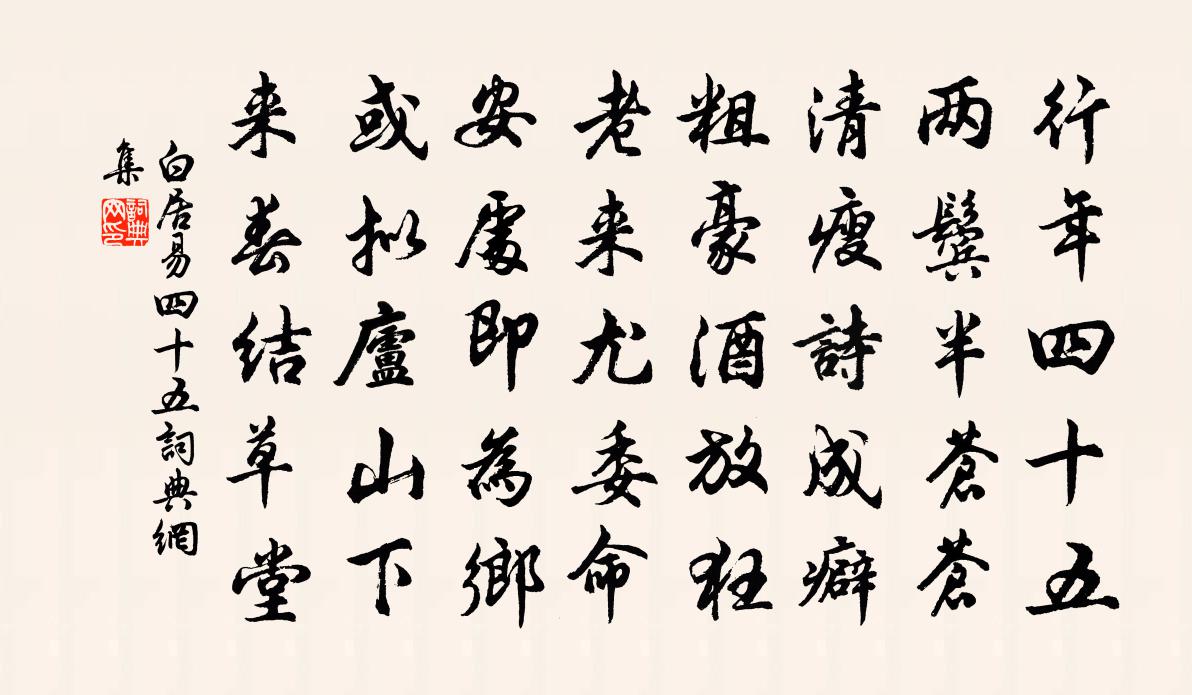 行年四十五
两鬓半蒼蒼
清瘦詩成癖
粗豪酒放狂
老来尤委命
安處即為鄉
或拟廬山下
来春結草堂
白居易四十五詞典網
集
詞典网印